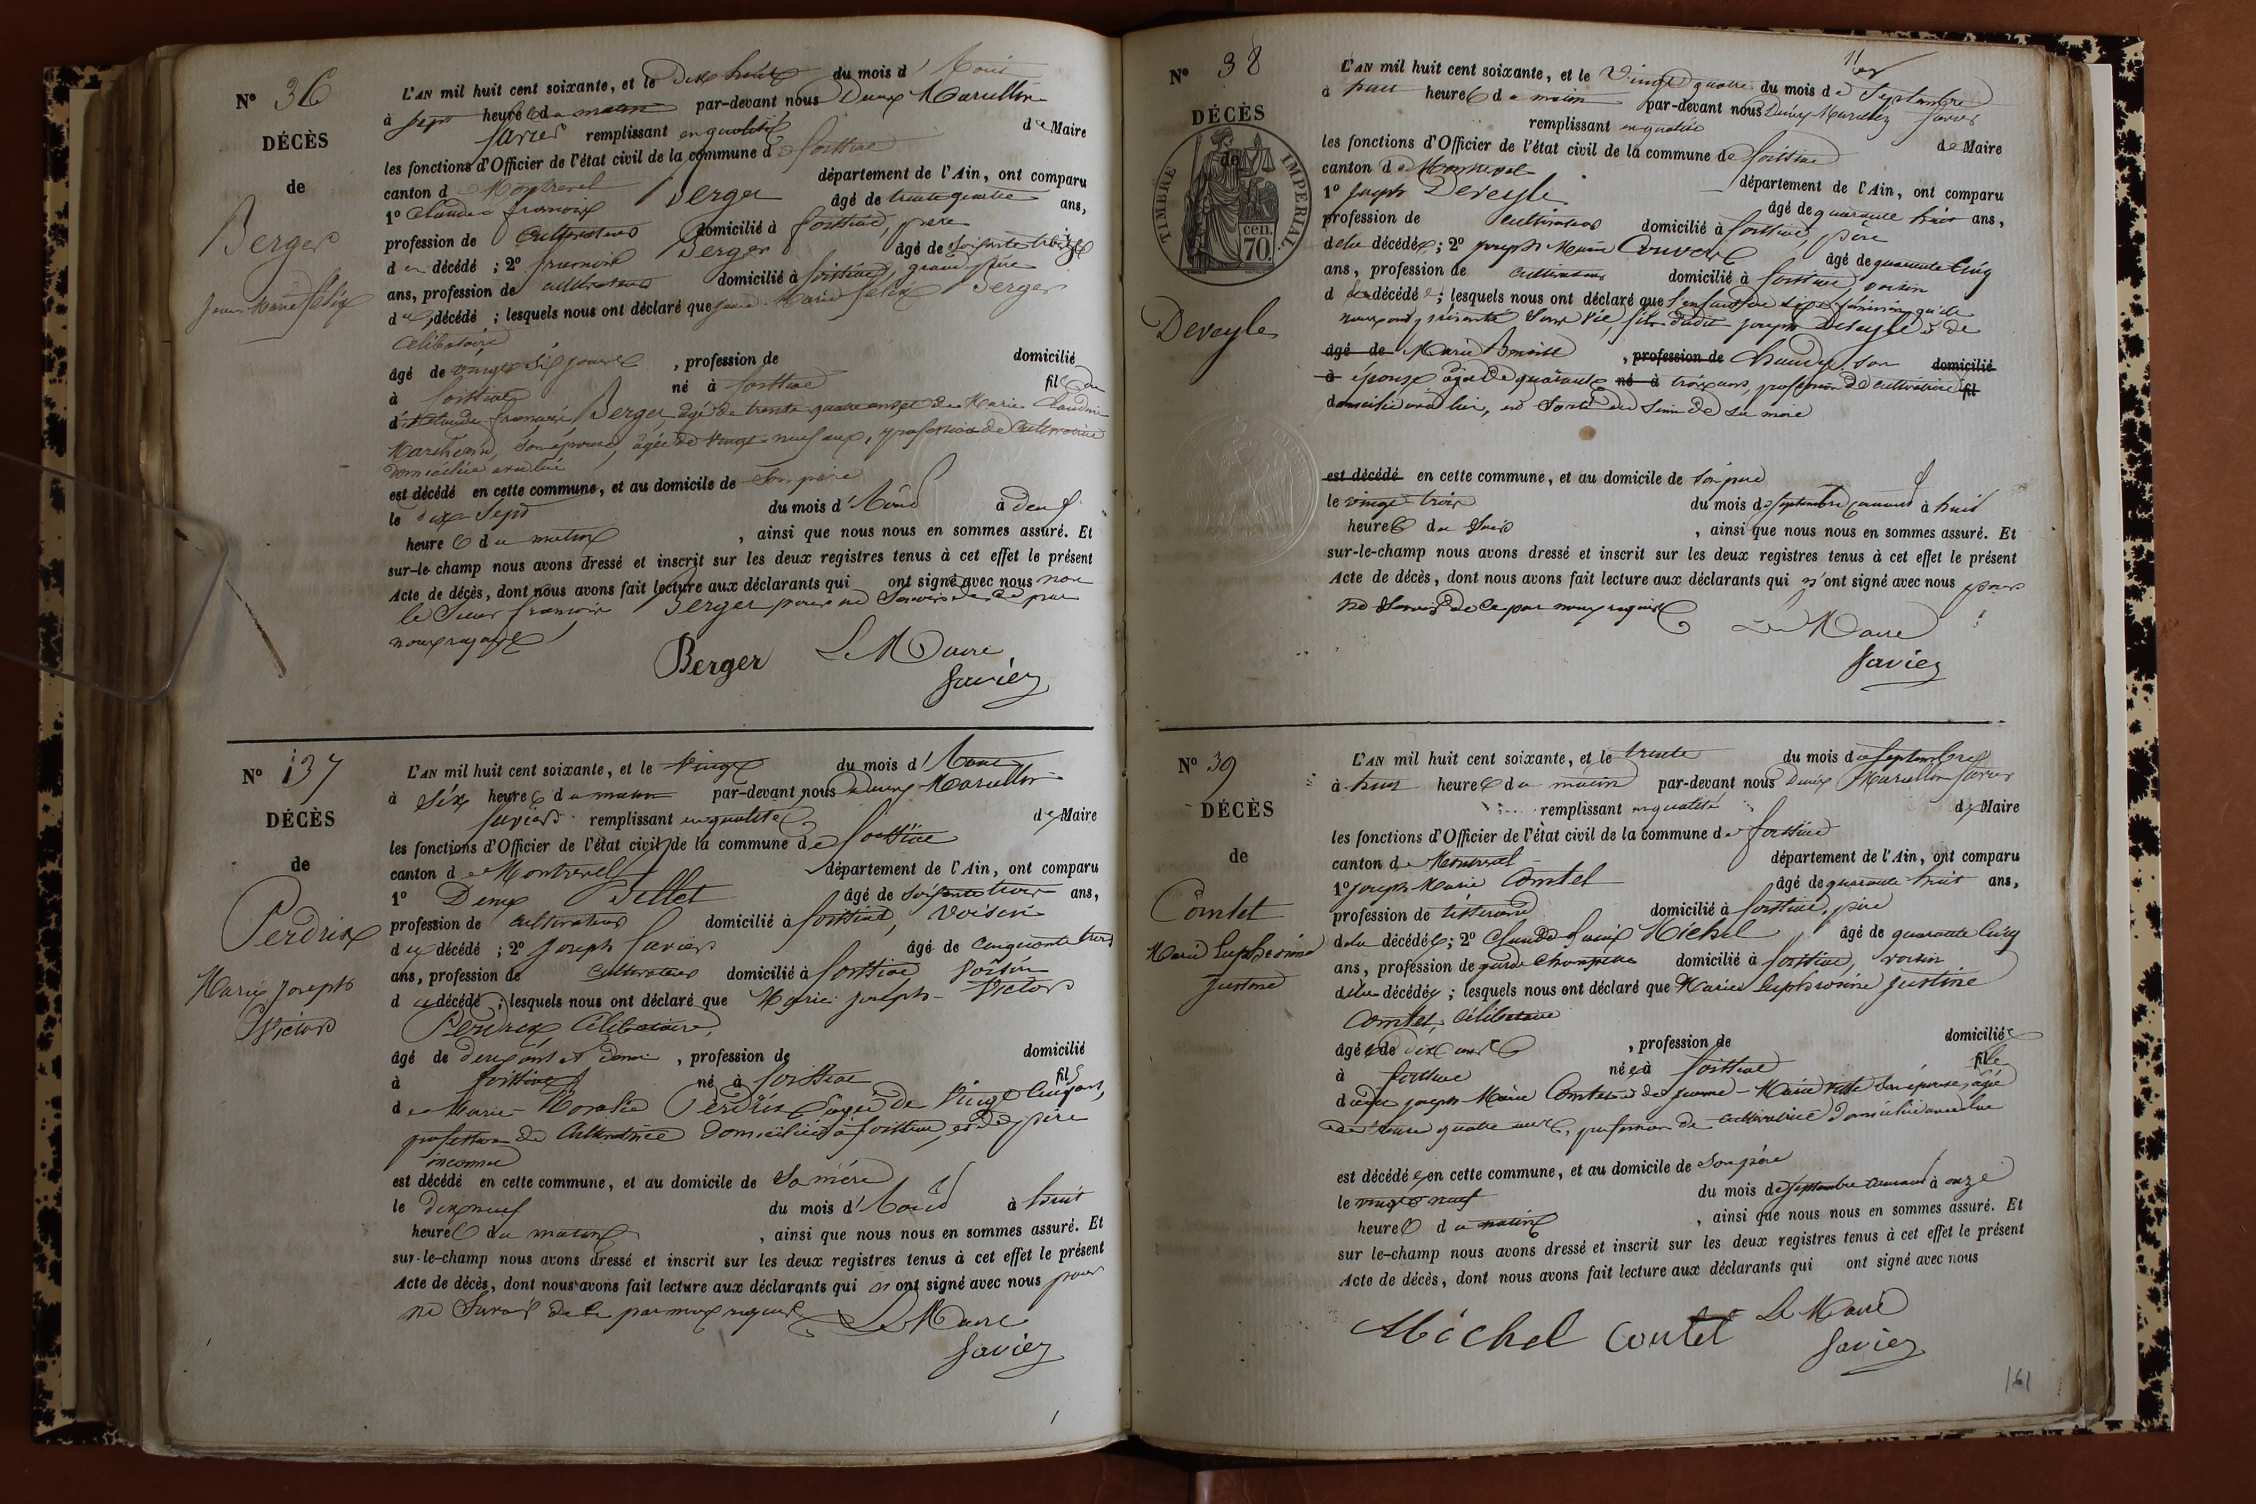 N° 36
DÉCÈS
de
Berger
Jean Marie félix
L'AN mil huit cent soixante, et le dix huit du mois d'Août
à sept heures du matin par-devant nous Denis Marcellin
Savier remplissant en qualité de Maire
les fonctions d'Officier de l'état civil de la commune de foissiat
canton de Montrevel département de l'Ain, ont comparu
1° Claude françois Berger âgé de trente quatre ans,
profession de Cultivateur domicilié à foissiat, père
du décédé ; 2° françois Berger âgé de soixante treize
ans, profession de cultivateur domicilié à foissiat, grand père
du décédé ; lesquels nous ont déclaré que Jean Marie félix Berger
Célibataire
âgé de vingt six jours , profession de domicilié
à foissiat né à foissiat fils de
de Claude françois Berger, âgé de trente quatre ans et de Marie Claudine
son épouse, âgée de vingt neuf ans, profession de Cultivatrice
domiciliée avec lui
est décédé en cette commune, et au domicile de Son père
le dix Sept du mois d'Août à deux
heures du matin , ainsi que nous nous en sommes assuré. Et
sur-le-champ nous avons dressé et inscrit sur les deux registres tenus à cet effet le présent
Acte de décès, dont nous avons fait lecture aux déclarants qui ont signé avec nous non
le Sieur françois Berger pour ne Savoir de ce par
nous requis
Berger Le Maire
Savier
N° 37
DÉCÈS
de
Perdrix
Marie Joseph
Victor
L'AN mil huit cent soixante, et le Vingt du mois d'Août
à Six heures du matin par-devant nous Denis Marcellin
Savier remplissant en qualité de Maire
les fonctions d'Officier de l'état civil de la commune de foissiat
canton de Montrevel département de l'Ain, ont comparu
1° Denis Pillet âgé de soixante trois ans,
profession de cultivateur domicilié à foissiat, voisin
du décédé ; 2° Joseph Savier âgé de cinquante trois
ans, profession de Cultivateur domicilié à foissiat voisin
du décédé ; lesquels nous ont déclaré que Marie Joseph Victor
Perdrix, Célibataire,
âgé de deux ans et demi , profession de domicilié
à foissiat né à foissiat fils
de Marie Perdrix âgée de Vingt Cinq ans,
profession de Cultivatrice domiciliée à foissiat, et de père
inconnu
est décédé en cette commune, et au domicile de Sa mère
le dix neuf du mois d'Août à huit
heures du matin , ainsi que nous nous en sommes assuré. Et
sur-le-champ nous avons dressé et inscrit sur les deux registres tenus à cet effet le présent
Acte de décès, dont nous avons fait lecture aux déclarants qui n'ont signé avec nous pour
ne Savoir de ce par nous requis Le Maire
Savier
N° 38
DÉCÈS
de
TIMBRE IMPERIAL
70 cen.
Deveyle
L'AN mil huit cent soixante, et le Vingt quatre du mois de Septembre
à huit heures du matin par-devant nous Denis Marcellin Savier
remplissant en qualité de Maire
les fonctions d'Officier de l'état civil de la commune de foissiat
canton de Montrevel département de l'Ain, ont comparu
1° Joseph Deveyle âgé de quarante huit ans,
profession de Cultivateur domicilié à foissiat, père
de la décédée ; 2° Joseph Marie Convert âgé de quarante Cinq
ans, profession de cultivateur domicilié à foissiat, voisin
de la décédée ; lesquels nous ont déclaré que l'enfant du sexe féminin qu'ils
nous ont présenté Sans vie fille dudit Joseph Deveyle et de
âgé de Marie Benoite , profession de son domicilié
à épouse âgée de quarante né à trois ans, profession de cultivatrice fil
domiciliée avec lui, est sorti du sein de sa mère
est décédé en cette commune, et au domicile de Son père
le vingt trois du mois de septembre courant à huit
heures du Soir , ainsi que nous nous en sommes assuré. Et
sur-le-champ nous avons dressé et inscrit sur les deux registres tenus à cet effet le présent
Acte de décès, dont nous avons fait lecture aux déclarants qui n'ont signé avec nous pour
ne Savoir de ce par nous requis
Le Maire
Savier
N° 39
DÉCÈS
de
Comtet
Marie Euphrosine
Justine
L'AN mil huit cent soixante, et le trente du mois de Septembre
à huit heures du matin par-devant nous Denis Marcellin Savier
remplissant en qualité de Maire
les fonctions d'Officier de l'état civil de la commune de foissiat
canton de Montrevel département de l'Ain, ont comparu
1° Joseph Marie Comtet âgé de quarante huit ans,
profession de tisserand domicilié à foissiat, père
de la décédée ; 2° Claude Michel âgé de quarante Cinq
ans, profession de garde champêtre domicilié à foissiat, voisin
de la décédée ; lesquels nous ont déclaré que Marie Euphrosine Justine
Comtet, Célibataire
âgée de dix ans , profession de domiciliée
à foissiat née à foissiat fille
dudit Joseph Marie Comtet et de Jeanne Marie son épouse, âgée
de quatre ans, profession de cultivatrice domiciliée avec lui
est décédée en cette commune, et au domicile de Son père
le vingt neuf du mois de septembre courant à onze
heures du matin , ainsi que nous nous en sommes assuré. Et
sur le-champ nous avons dressé et inscrit sur les deux registres tenus à cet effet le présent
Acte de décès, dont nous avons fait lecture aux déclarants qui ont signé avec nous
Michel Contet Le Maire
Savier
161